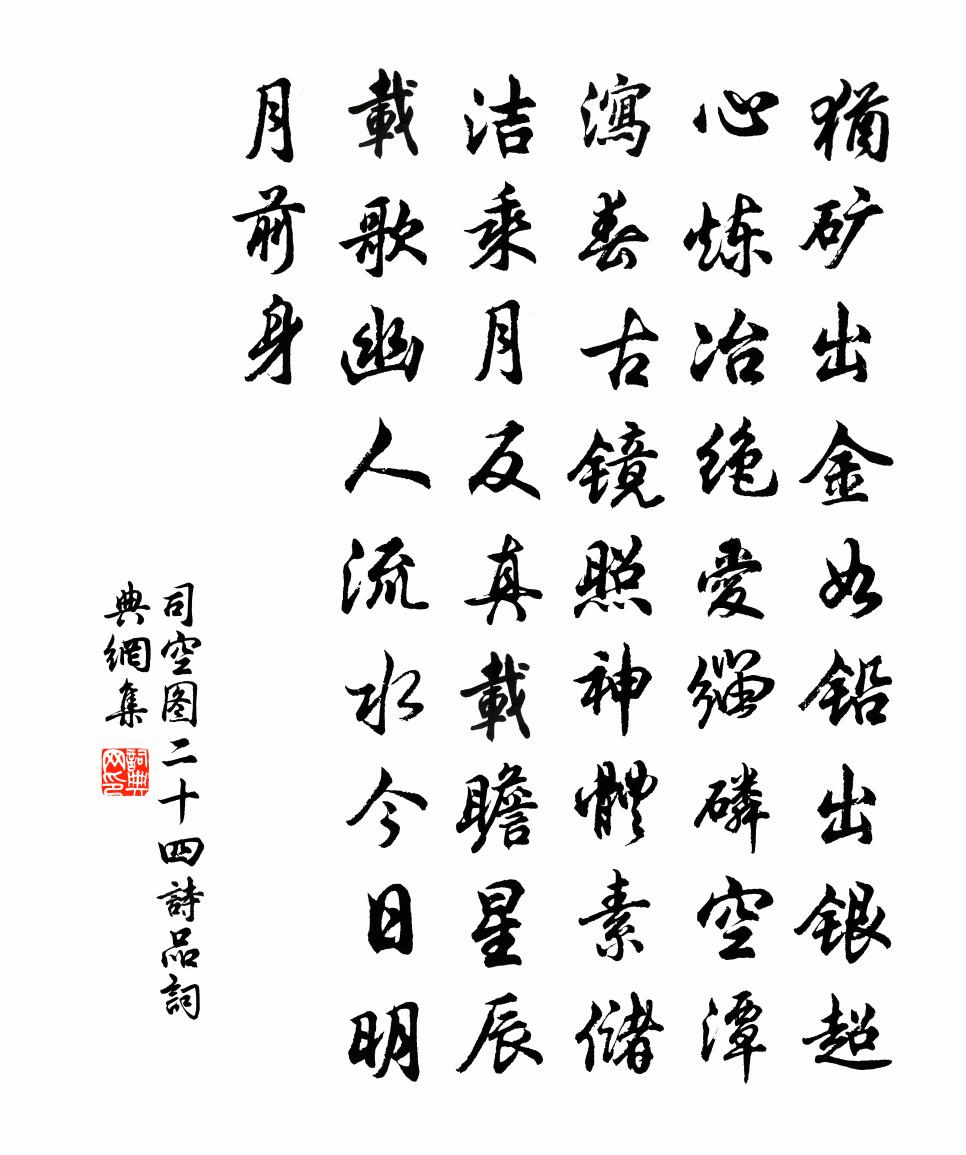 猶矿出金如铅出银超
心炼冶绝愛缁磷空潭
瀉春古镜照神體素儲
洁乘月反真載瞻星辰
載歌幽人流水今日明
月前身
司空图二十四詩品詞
典網集
詞典
网印